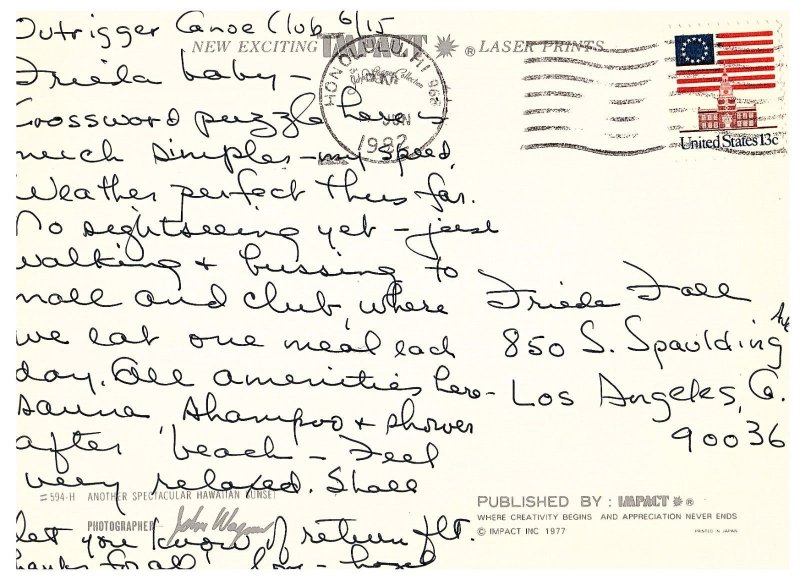 Outrigger Canoe Club 6/15
NEW EXCITING IMPACT ® LASER PRINTS
Frieda baby -
Crossword puzzle here is
much simpler - my speed
Weather perfect thus far.
No sightseeing yet - just
walking + bussing to
mall and club, where
we eat one meal each
day. All amenities here -
sauna, shampoo + shower
after beach - Feel
very relaxed. Shall
let you know of return flt.
thanks for all love - hazel
HONOLULU, HI 968
PM
JUN
1982
United States 13c
Frieda Fall
850 S. Spaulding Ave
Los Angeles, Ca.
90036
594-H ANOTHER SPECTACULAR HAWAIIAN SUNSET
PHOTOGRAPHER John Wagner
PUBLISHED BY: IMPACT ®
WHERE CREATIVITY BEGINS AND APPRECIATION NEVER ENDS
© IMPACT INC 1977
PRINTED IN JAPAN